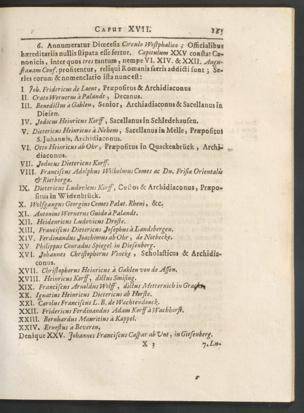 CAPUT XVII.
325
6. Annumeratur Diœcesis Circulo Westphalico; Officialibus
hæreditariis nullis stipata esse fertur. Capitulum XXV constat Ca-
nonicis, inter quos tres tantum, nempe VI. XIV. & XXII. Augu-
stanam Conf. profitentur, reliqui Romanis sacris addicti sunt; Se-
ries eorum & nomenclatio ista nunc est:
I. Joh. Fridericus de Loent, Præpositus & Archidiaconus
II. Crato Wernerus à Palande, Decanus.
III. Benedictus à Gahlen, Senior, Archiadiaconus & Sacellanus in
Dissen.
IV. Jodocus Heinricus Korff, Sacellanus in Schledehausen.
V. Dietericus Heinricus à Nehem, Sacellanus in Melle, Præpositus
S. Johannis, Archidiaconus.
VI. Otto Heinricus ab Ohr, Præpositus in Quackenbrück, Archi-
diaconus.
VII. Jodocus Dietericus Korff.
VIII. Franciscus Adolphus Wilhelmus Comes ac Dn. Frisiæ Orientalis
& Rietbergæ.
IX. Dietericus Ludovicus Korff, Custos & Archidiaconus, Præpo-
situs in Widenbrück.
X. Wolffgangus Georgius Comes Palat. Rheni, &c.
XI. Antonius Wernerus Guido à Palande.
XII. Heidenricus Ludovicus Droste.
XIII. Franciscus Dietericus Josephus à Landsbergen.
XIV. Ferdinandus Joachimus ab Ohr, de Niebocke.
XV. Philippus Conradus Spiegel in Diesenberg.
XVI. Johannes Christophorus Voseig, Scholasticus & Archidia-
conus.
XVII. Christophorus Heinricus à Gahlen von de Assen.
XVIII. Heinricus Korff, dictus Smising.
XIX. Franciscus Arnoldus Wolff, dictus Metternich in Gracht.
XX. Ignatius Heinricus Dietericus ab Horste.
XXI. Carolus Franciscus L. B. de Wachtendonck.
XXII. Fridericus Ferdinandus Adam Korff à Wachhorst.
XXIII. Bernhardus Mauritius à Kappel.
XXIV. Ernestus à Beveren.
Denique XXV. Johannes Franciscus Caspar ab Unt, in Giesenberg.
X 3
7. Lu-